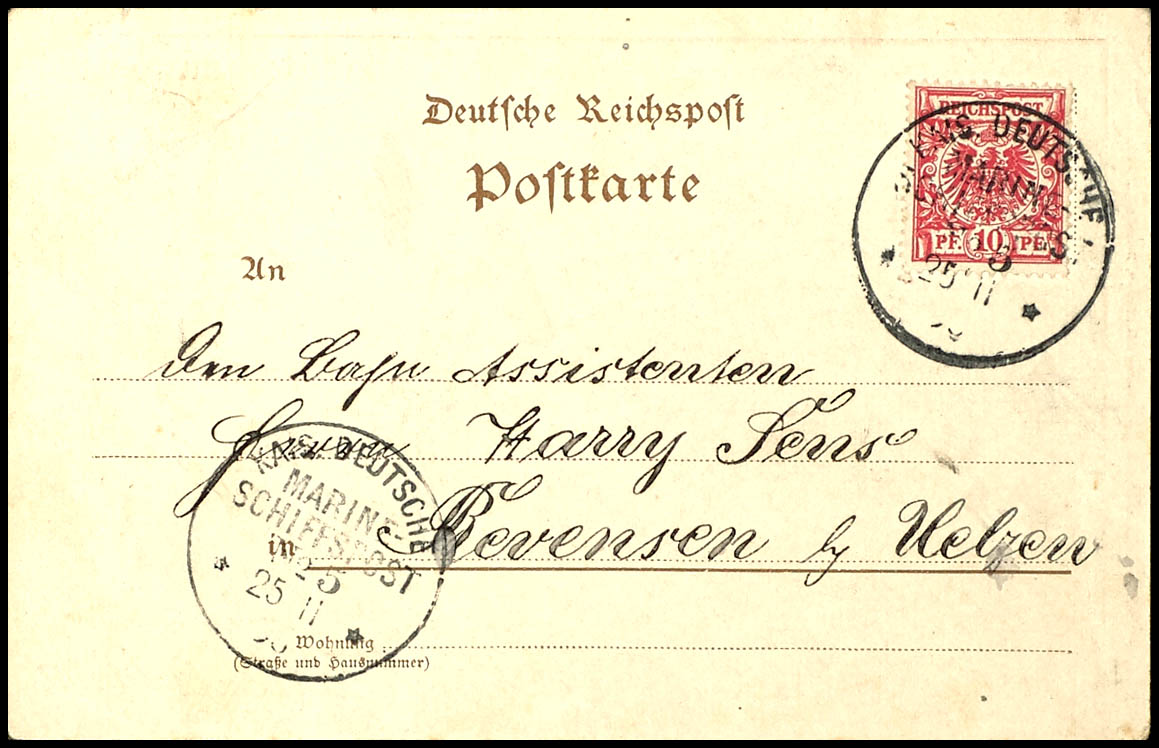 Deutsche Reichspost
Postkarte
REICHSPOST
PF. 10 PF.
KAIS. DEUTSCHE
MARINE-
25 11
An
Den Bahn Assistenten
Herrn Harry Sens
in Bevensen b/ Uelzen
KAIS. DEUTSCHE
MARINE-
SCHIFFSPOST
No 5
25 11
Wohnung
(Straße und Hausnummer)